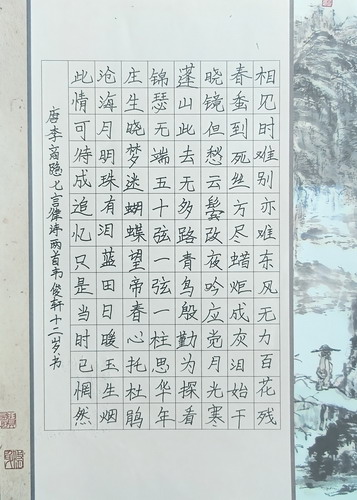 相见时难别亦难东风无力百花残
春蚕到死丝方尽蜡炬成灰泪始干
晓镜但愁云鬓改夜吟应觉月光寒
蓬山此去无多路青鸟殷勤为探看
锦瑟无端五十弦一弦一柱思华年
庄生晓梦迷蝴蝶望帝春心托杜鹃
沧海月明珠有泪蓝田日暖玉生烟
此情可待成追忆只是当时已惘然
唐李商隐七言律诗两首韦俊轩十二岁书